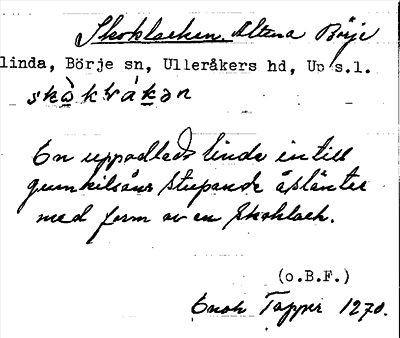 Skoklacken. Altuna Börje
linda, Börje sn, Ulleråkers hd, Up s.l.
skò̲kkrák̲ən
En uppodlad linda intill
gumkilsåns stupande åslänter
med form av en skoklack.
(o.B.F.)
Enok Tapper 1270.